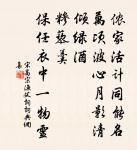 儂家活計豈能名
萬頃波心月影清
傾綠酒
糝藜羹
保任衣中一物靈
宋高宗漁父詞詞典網